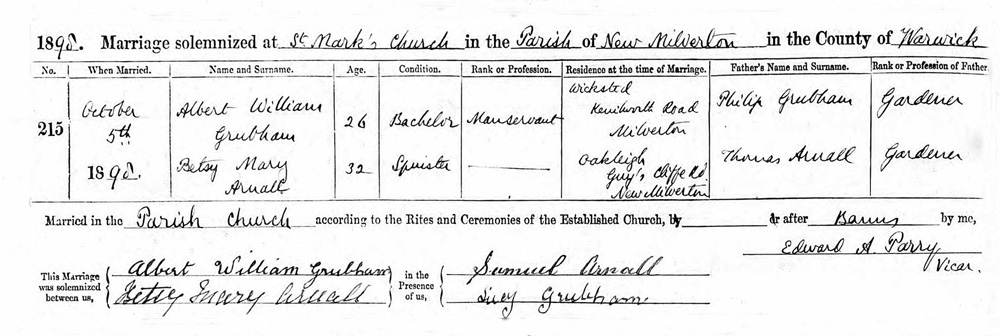 1898. Marriage solemnized at St Mark's Church in the Parish of New Milverton in the County of Warwick
No. When Married. Name and Surname. Age. Condition. Rank or Profession. Residence at the time of Marriage. Father's Name and Surname. Rank or Profession of Father.
215 October 5th 1898. Albert William Grubham 26 Bachelor Manservant Wicksted Kenilworth Road Milverton Philip Grubham Gardener
Betsy Mary Arnall 32 Spinster Oakleigh Guy's Cliffe Rd. New Milverton Thomas Arnall Gardener
Married in the Parish Church according to the Rites and Ceremonies of the Established Church, by or after Banns by me,
Edward A. Parry
Vicar.
This Marriage was solemnized between us, Albert William Grubham Betsy Mary Arnall in the Presence of us, Samuel Arnall Lucy Grubham